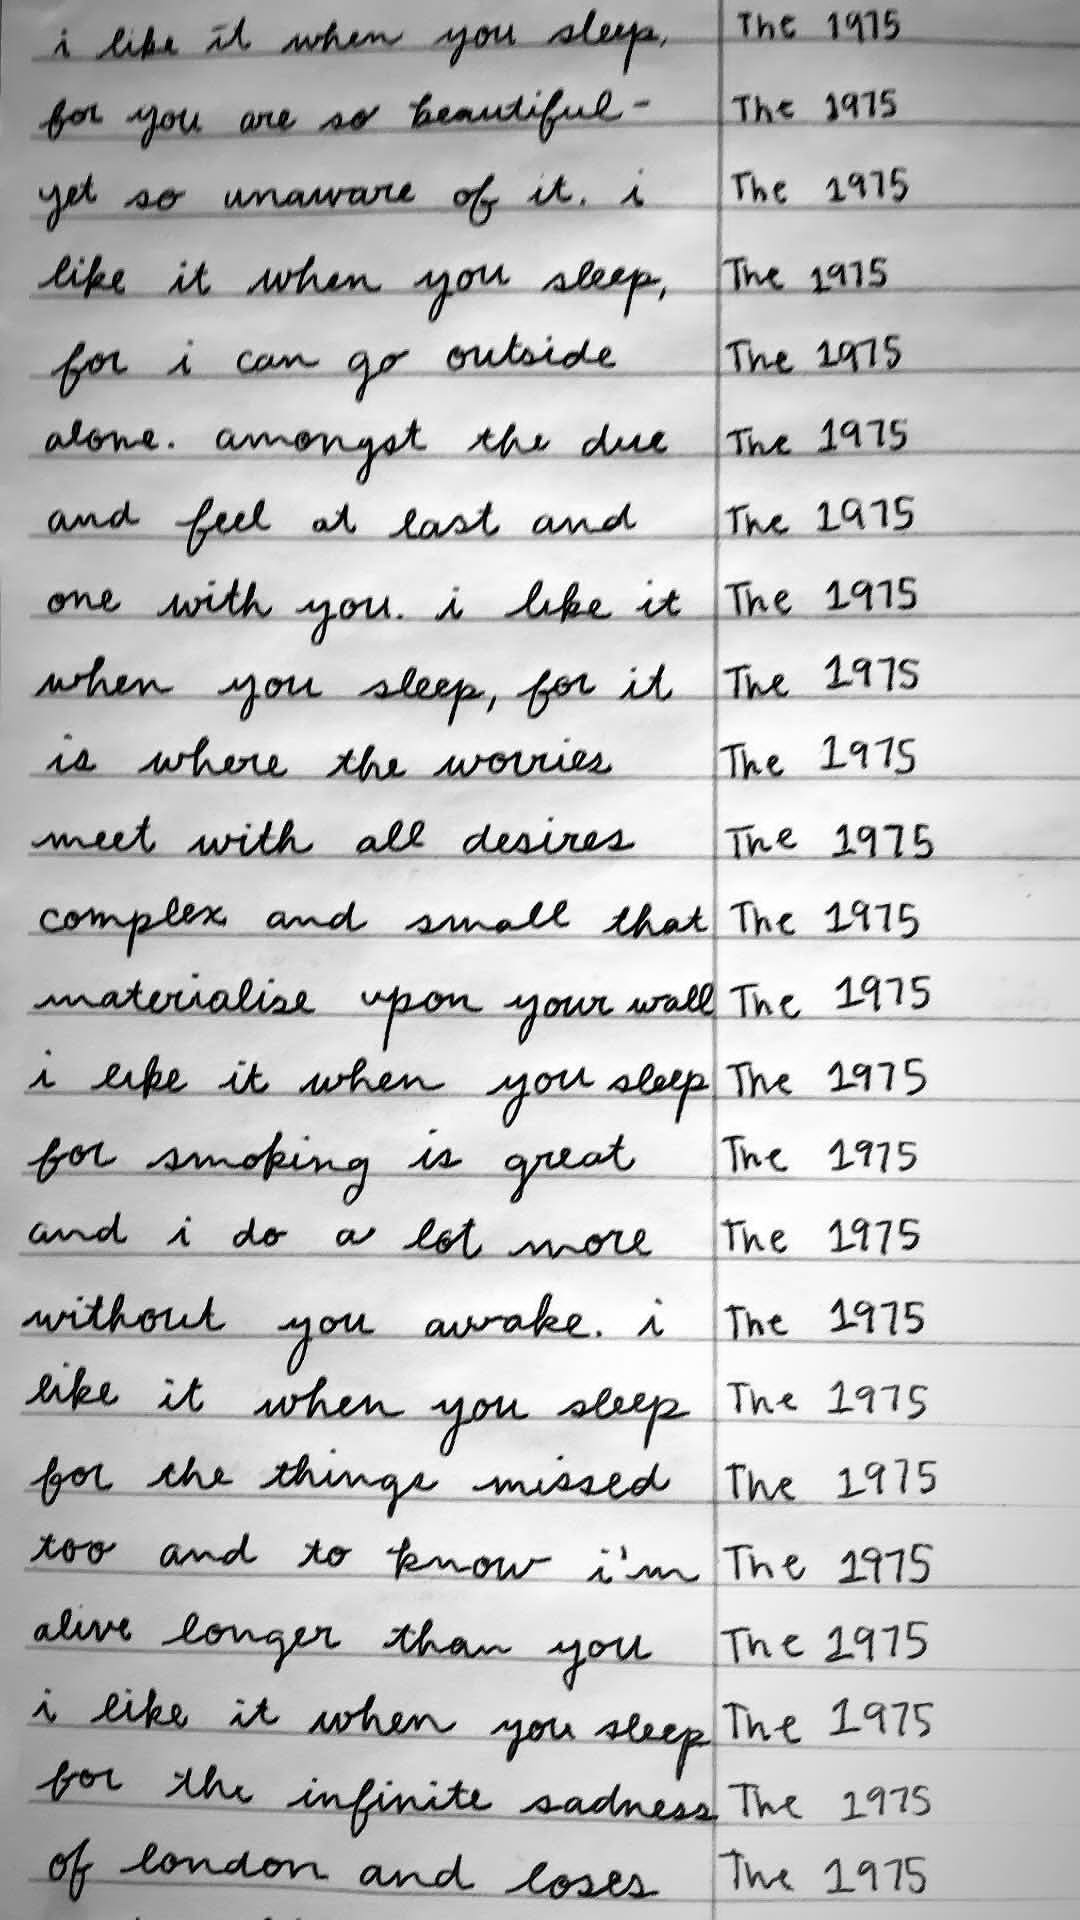 i like it when you sleep, The 1975
for you are so beautiful - The 1975
yet so unaware of it. i The 1975
like it when you sleep, The 1975
for i can go outside The 1975
alone. amongst the due The 1975
and feel at last and The 1975
one with you. i like it The 1975
when you sleep, for it The 1975
is where the worries The 1975
meet with all desires The 1975
complex and small that The 1975
materialise upon your wall The 1975
i like it when you sleep The 1975
for smoking is great The 1975
and i do a lot more The 1975
without you awake. i The 1975
like it when you sleep The 1975
for the things missed The 1975
too and to know i'm The 1975
alive longer than you The 1975
i like it when you sleep The 1975
for the infinite sadness The 1975
of london and loses The 1975